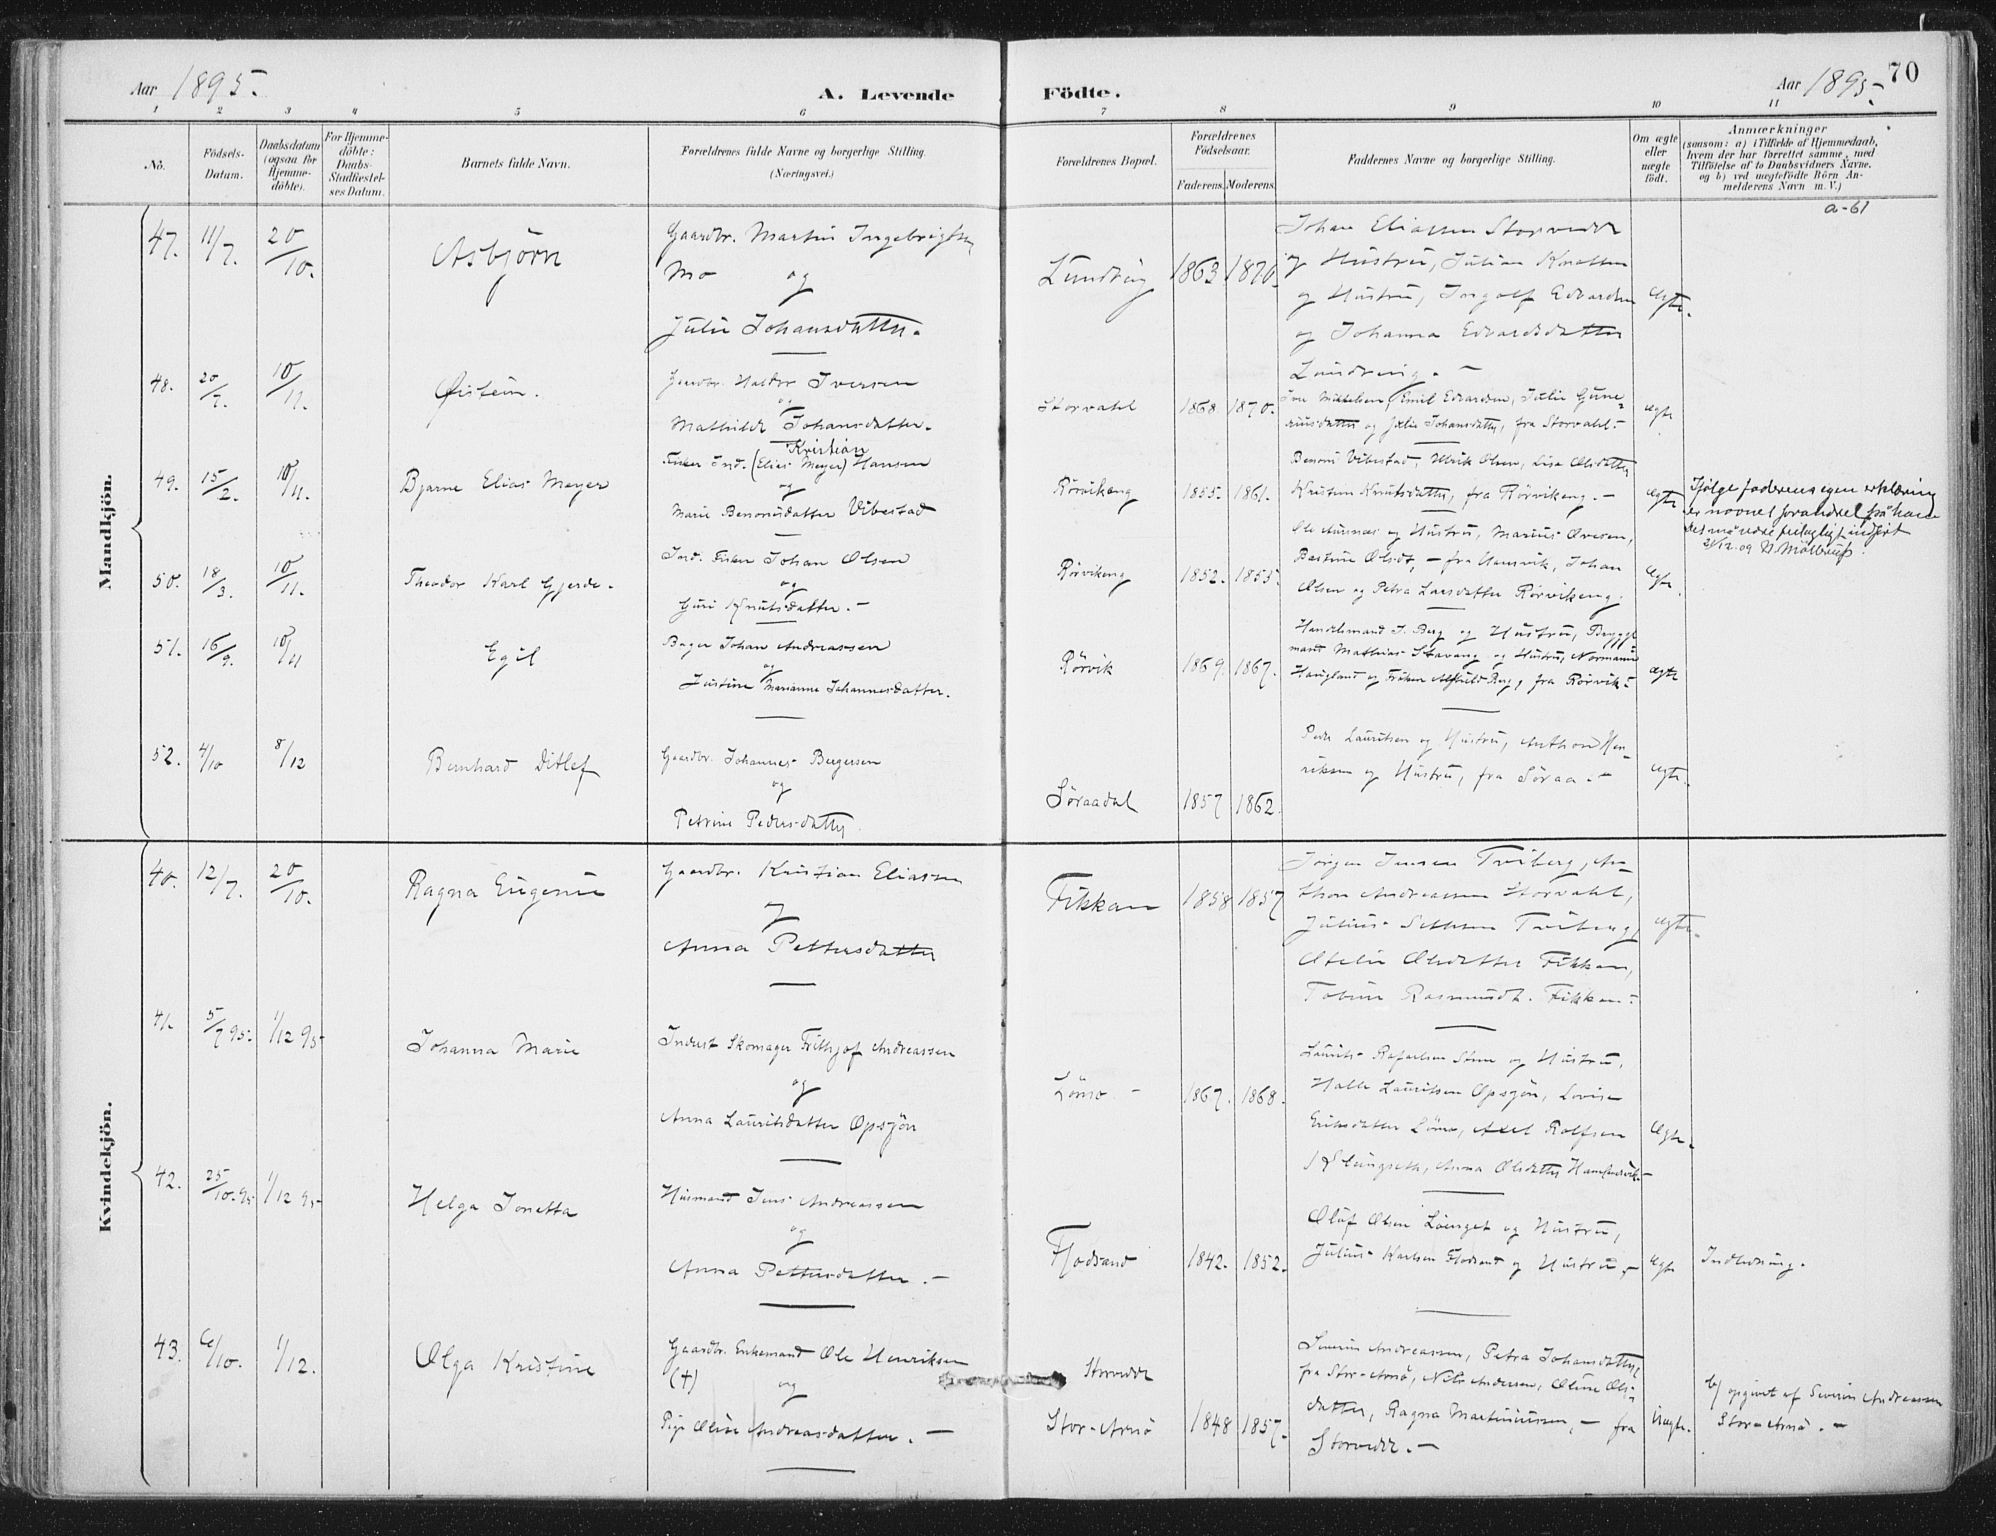 Aar 1895.
A. Levende Födte.
Aar 1895. 70
1 2 3 4 5 6 7 8 9 10 11
Nô.
Födsels-
Datum.
Daabsdatum
(ogsaa for
Hjemme-
döbte).
For Hjemme-
döbte:
Daabs-
Stadfæstel-
ses Datum.
Barnets fulde Navn.
Forældrenes fulde Navne og borgerlige Stilling.
(Næringsvei.)
Forældrenes Bopæl.
Forældrenes
Födselsaar.
Faderens. Moderens.
Faddernes Navne og borgerlige Stilling.
Om ægte
eller
uægte
födt.
Anmærkninger
(saasom: a) i Tilfælde af Hjemmedaab,
hvem der har forrettet samme, med
Tilföielse af to Daabsvidners Navne.
og b) ved uægtefödte Börn An-
melderens Navn m. V.)
a-61
Mandkjön.
47. 11/7. 20/10. Asbjörn
Gaardbr. Martin Ingebrigtsen
Mo og
Julie Johansdatter.
Lundring 1863 1870.
Johan Eliassen Storvedde
og Hustru, Julian Knutsen
og Hustru, Ingolf Edvardsen
og Johanna Edvardsdatter
Lundring.
ægte.
48. 20/7. 10/11. Øistein.
Gaardbr. Haldor Iversen
og
Mathilde Johansdatter.
Storvahl 1868 1870.
Iver Mikkelsen, Emil Edvardsen, Julie Gune-
riusdatter og Julie Johansdatter, fra Storvahl.
ægte
49. 15/2. 10/11. Bjarne Elias Meyer
Kristian
Fisker Ind. (Elias Meyer) Hansen
og
Marie Benoniusdatter Vibestad
Rörvikeng 1855. 1861.
Benoni Vibestad, Ulrik Olsen, Lise Olsdatter
Kristine Knutsdatter, fra Rörvikeng.
ægte
Ifölge faderens egen erklæring
er navnet forandret fra Hans
21/12.
50. 18/3. 10/11. Theodor Karl Gjerde.
Ind. Fisker Johan Olsen
og
Guri Knutsdatter.
Rörvikeng 1852. 1855.
Ole Aursnes og Hustru, Marius Ovesen,
Bastine Olsdt, fra Hansvik, Johan
Olsen og Petra Larsdatter Rörvikeng.
ægte
51. 16/9. 10/11 Egil
Bager Johan Andreassen
og
Justine Marianne Johannesdatter.
Rörvik 1869. 1867.
Handelsmand J. Berg og Hustru, Brygge-
mand Mathias Stavang og Hustru, Normann
Haugland og Fröken Alfhild Berg, fra Rörvik.
ægte
52. 4/10 8/12 Bernhard Ditlef
Gaardbr. Johannes Bergersen
og
Petrine Pedersdatter.
Söraadal 1857 1862.
Peder Lauritsen og Hustru, Anthon Hen-
riksen og Hustru, fra Söraa.
ægte.
Kvindekjön.
40. 12/7. 20/10. Ragna Eugenie
Gaardbr. Kristian Eliassen
og
Anna Pettersdatter
Fikkan 1858 1857
Jörgen Jensen Treiberg, An-
thon Andreassen Storvahl,
Julius Sethsen Treiberg,
Otelie Olsdatter Fikkan,
Tobine Rasmusdt. Fikkan.
ægte.
41. 5/7 95. 1/12 95. Johanna Marie
Inderst Skomager Frithjof Andreassen
og
Anna Lauritsdatter Opsjön
Lömo 1867. 1868.
Laurits Rafaelsen Stene og Hustru,
Halle Lauritsen Opsjön, Lovise
Eriksdatter Lömo, Axel Rolfsen
Klungseth, Anna Olsdatter
ægte.
42. 25/10 95 1/12 95. Helga Jonetta
Husmand Jens Andreassen
og
Anna Pettersdatter.
Flodsand 1842. 1852.
Oluf Olsen Lönget og Hustru,
Julius Karlsen Flodsand og Hustru,
ægte
Indledning.
43. 6/10. 1/12. Olga Kristine
Gaardbr. Enkemand Ole Henriksen
(+) og
Pige Oline Andreasdatter.
Storvedde
Stor-Arnö 1848 1857.
Severin Andreassen, Petra Johansdatter,
fra Stor-Arnö, Nels Andersen, Oline Ols-
datter, Ragna Martiniussen, fra
Storvedde.
Uægte.
b) opgivet af Severin Andreassen
Stor-Arnö.